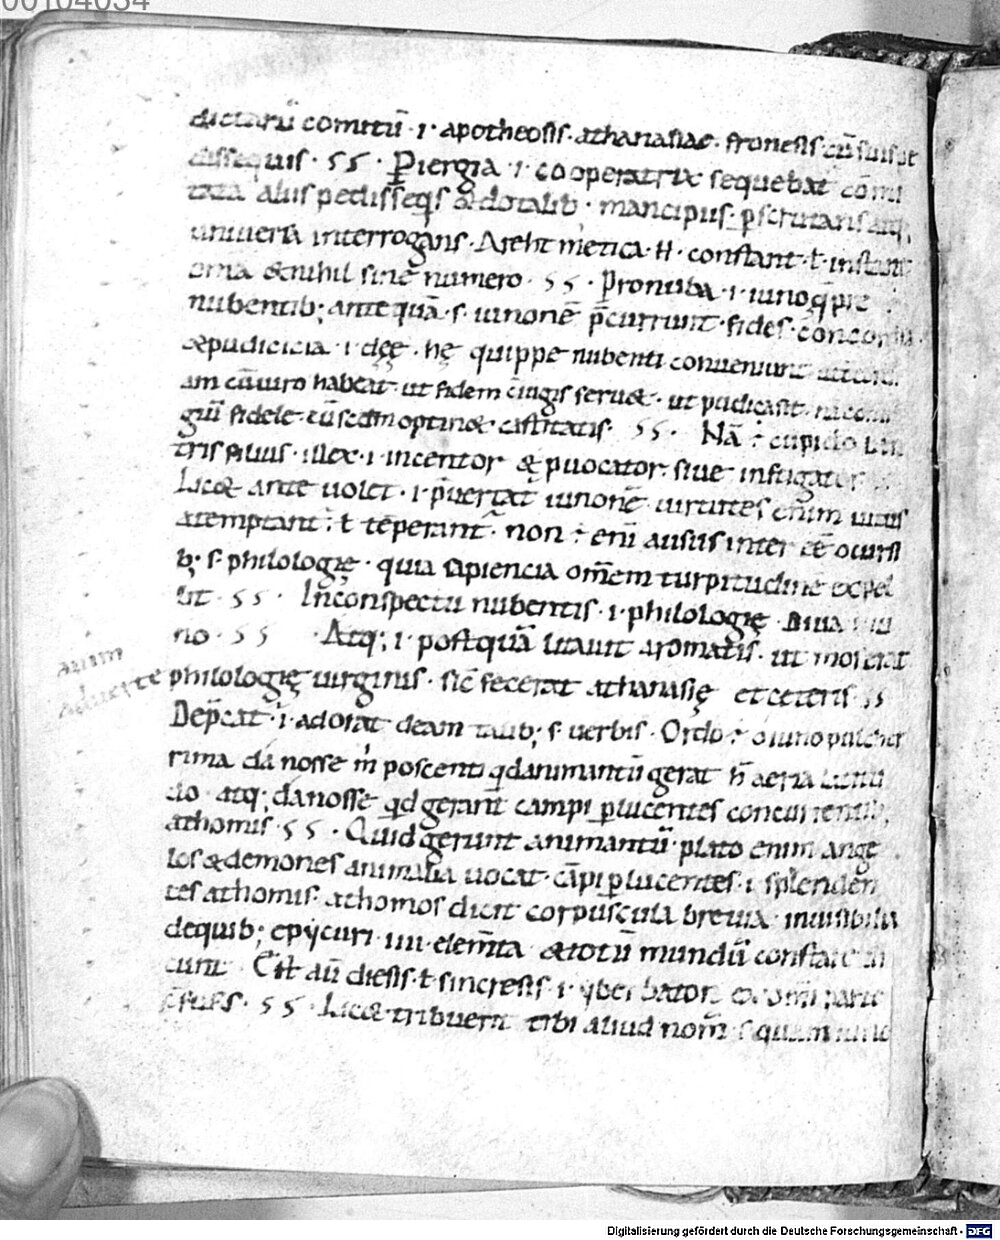 00104034
dictarū comitū · i · apotheosis · athanasiae · fronesis · cū suis pe
dissequis · ss · Piergia · i · cooperatrix sequebat comi
tata aliis pedisseq̄s & dotalib · mancipiis · pscrutans atq;
universa interrogans · Arehtmetica · H · constant · ł · instant
omīa & nihil sine numero · ss · Pronuba · i · iuno q̄ pre
nubentib; antequā · s · iunonē p̄currunt · fides · concordia ·
& pudicicia · i · deę ę · hę quippe nubenti conveniunt
am cū viro habeat · ut fidem c̄iugis seruet · ut pudica sit ·
giū fidele · cū secdm optinet castitatis · ss · Nā ÷ cupido uen
tris filius · illex · i · incentor & p̄uocator · siue instigator
Licet ante uolet · i · p̄uertat iunonē · uirtutes enim uitiis
atemptant ; ł tēperant · non ÷ enī ausus inter ēē
b; s · philologię · quia sapiencia omēm turpitudinē expel
lit · ss · In c̄onspectu nubentis · i · philologię · Diua · i · iu
no · ss · Atq; i · postquā litauit aromatis · ut mos erat
philologię uirginis · sic̄ fecerat athanasię et ceteris · ss
aliam
Aduerte
Dep̄cat · i · adorat deam talib; s · uerbis · Ordo ÷ o iuno pulcher
rima da nosse m̄ poscenti q̄d animantū gerat h̄ aeria latitu
do · atq; da nosse q̄d gerant campi p̱lucentes concurrentib;
athomis · ss · Quid gerunt animantū · plato enim ange
los & demones animalia uocat · cāpi p̱lucentes · i · splenden
tes athomis · athomos dicit corpuscula breuia · inuisibilia
de quib; epycuri · iiii · elem̄ta & totū mundū constare di
cunt · Est aū diesis · ł · sincresis · i · yberbaton ex omi parte
c̄fusus · ss · Licet tribuerit tibi aliud nom̄ · s · quam iuno
Digitalisierung gefördert durch die Deutsche Forschungsgemeinschaft - DFG